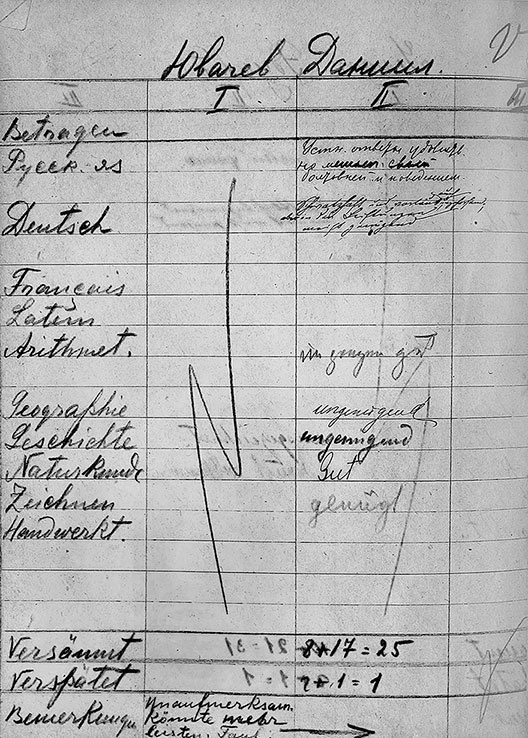 Ювачев Даниил.
III I II III
Betragen
Русск. яз Устн. ответы удовлетв.
но мешает своей
болтовней и поведением
Deutsch
genügend
Français
Latein
Arithmet. im ganzen gut
Geographie ungenügend
Geschichte ungenügend
Naturkunde Gut
Zeichnen genügt
Handwerkt.
Versäumt 8+17=25
Verspätet 1=1
Bemerkungen Unaufmerksam.
könnte mehr
leisten. Faul.